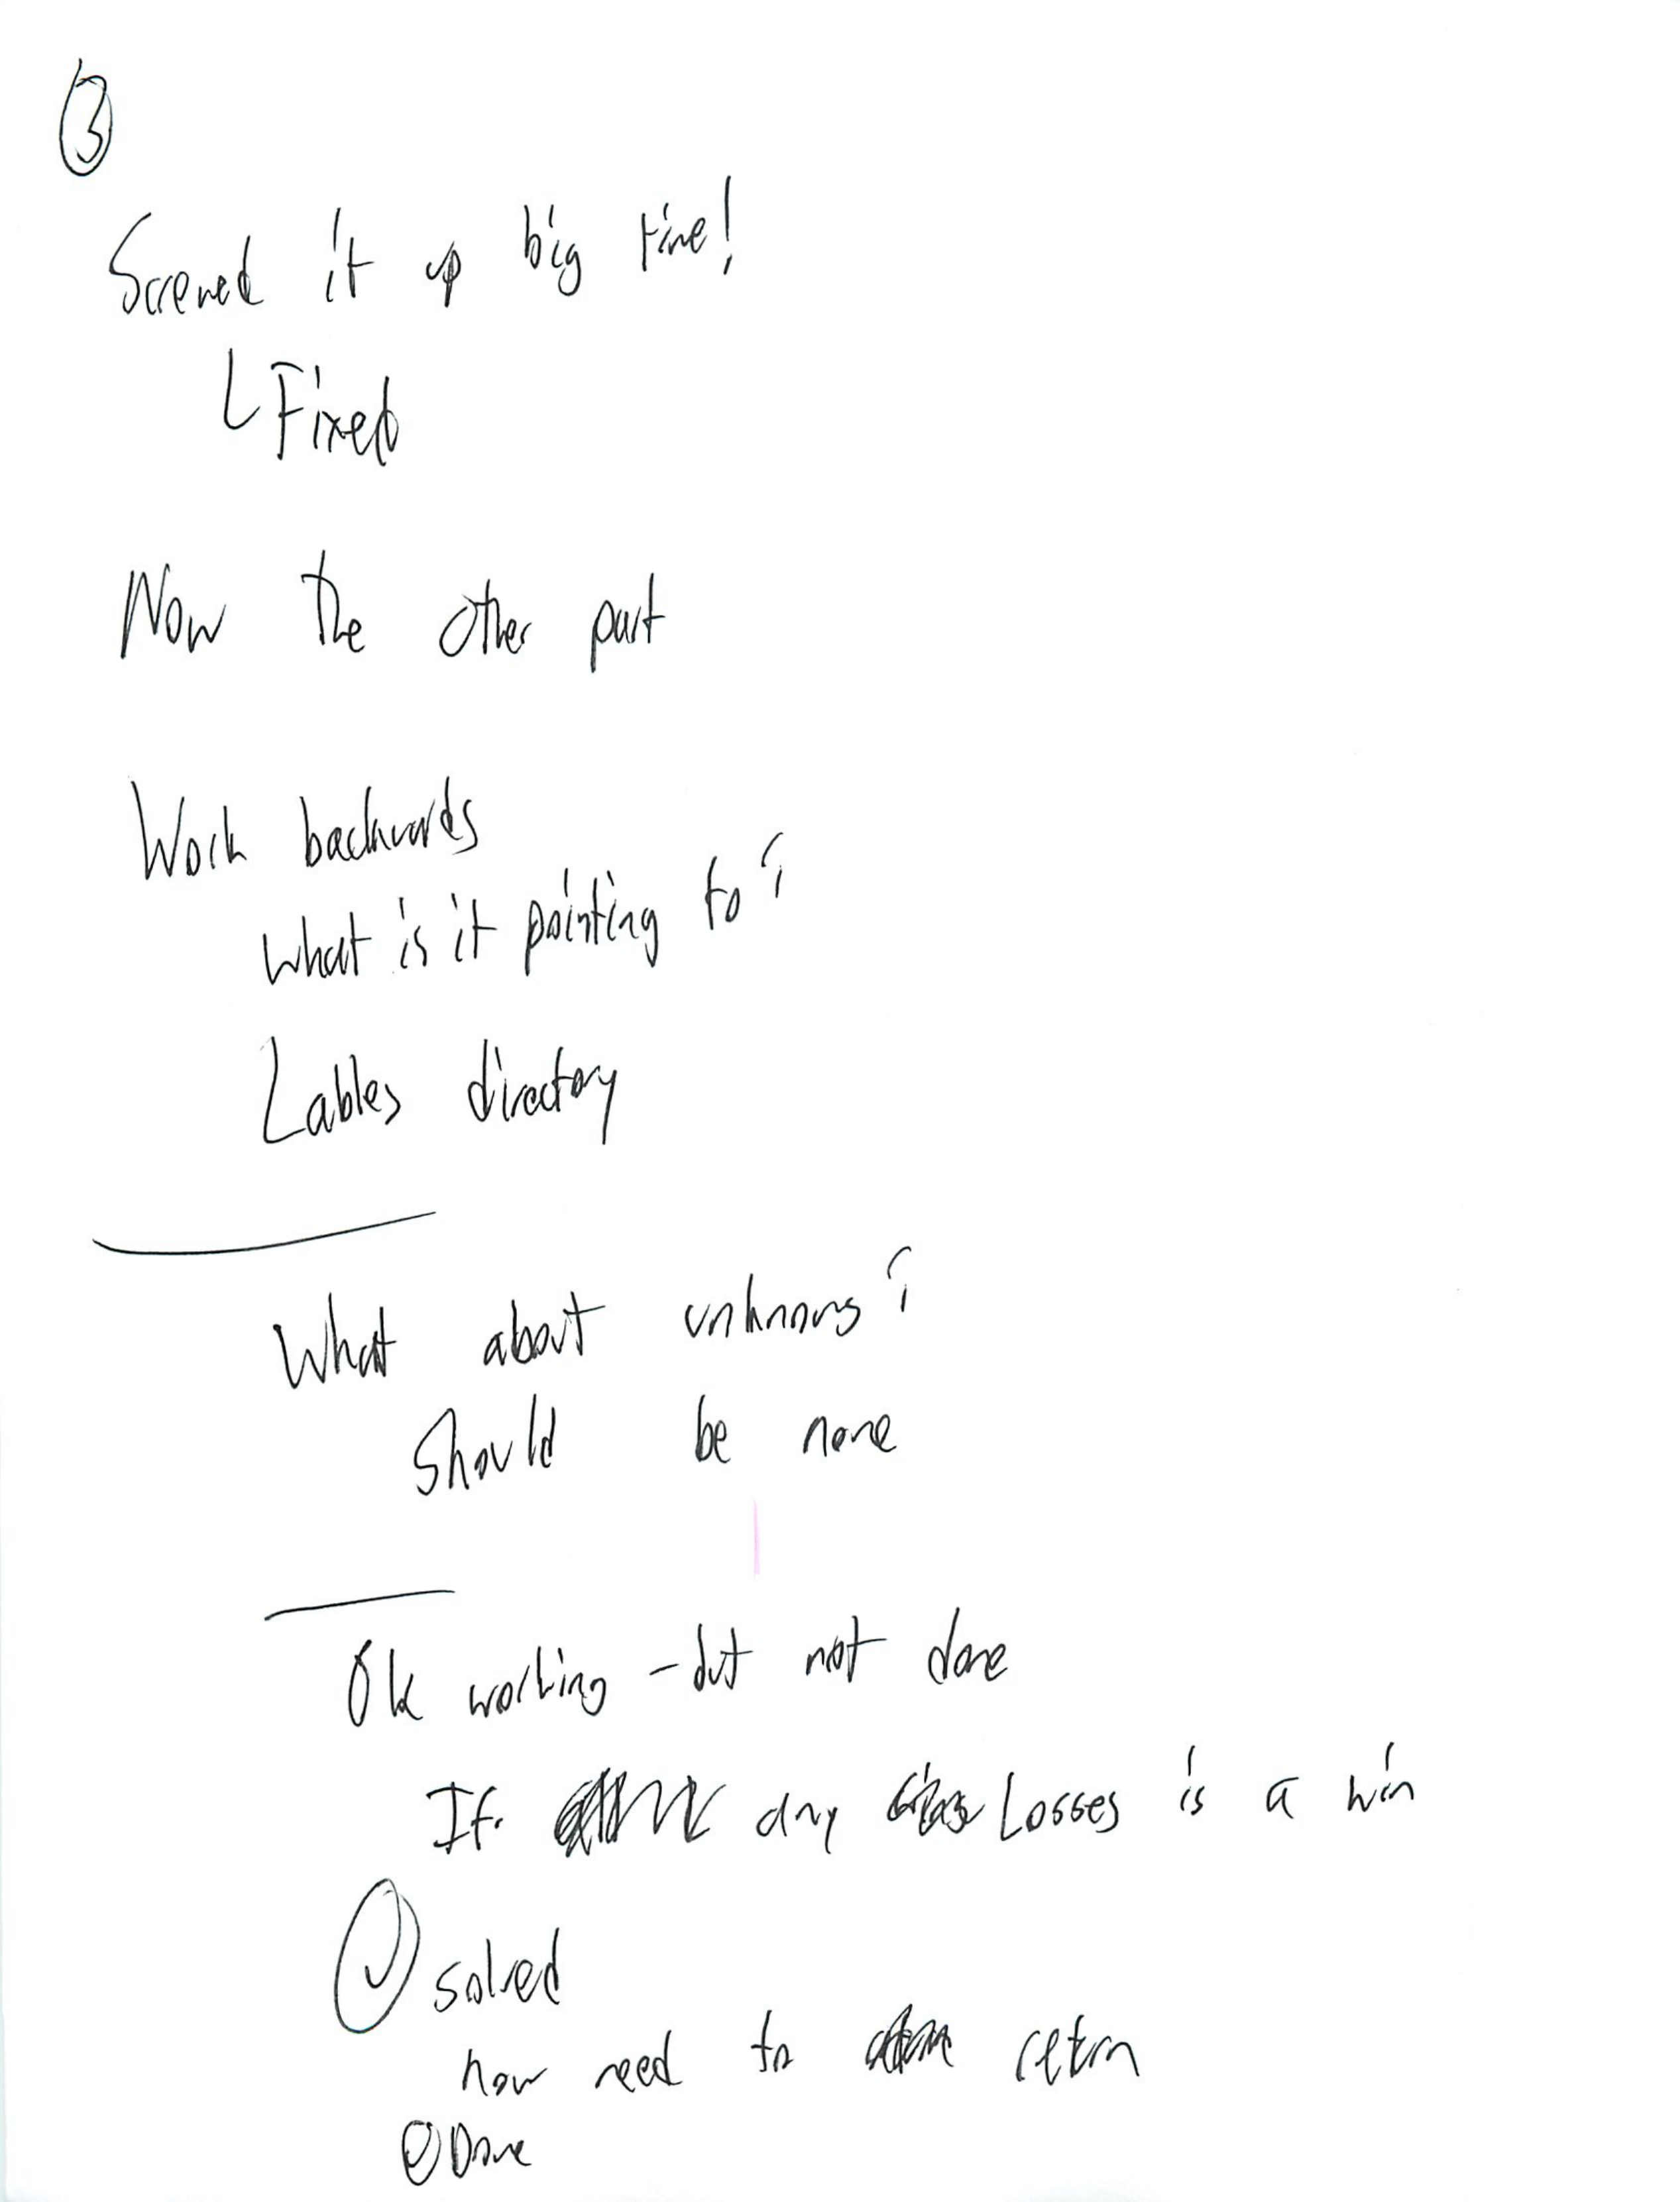 3
Screwed it up big time!
Fixed
Now the other part
Work backwards
What is it pointing to?
Lables directory
What about unknowns?
Should be none
Ok working - but not done
If any Losses is a win
solved
now need to return
Done